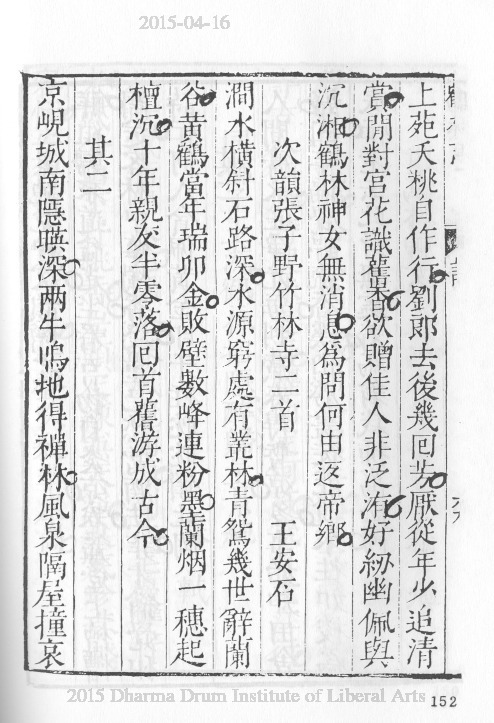 2015-04-16
上苑夭桃自作行劉郎去後幾回芳厭從年少追清
賞閒對宮花識舊香欲贈佳人非泛洧好紉幽佩與
沉湘鶴林神女無消息為問何由返帝鄉
次韻張子野竹林寺二首 王安石
澗水橫斜石路深水源窮處有叢林青鴛幾世辭蘭
谷黃鶴當年瑞卯金敗壁數峰連粉墨蘭烟一穗起
檀沉十年親友半零落回首舊游成古今
其二
京峴城南隱暎深两牛鳴地得禪林風泉隔屋撞哀
2015 Dharma Drum Institute of Liberal Arts
152